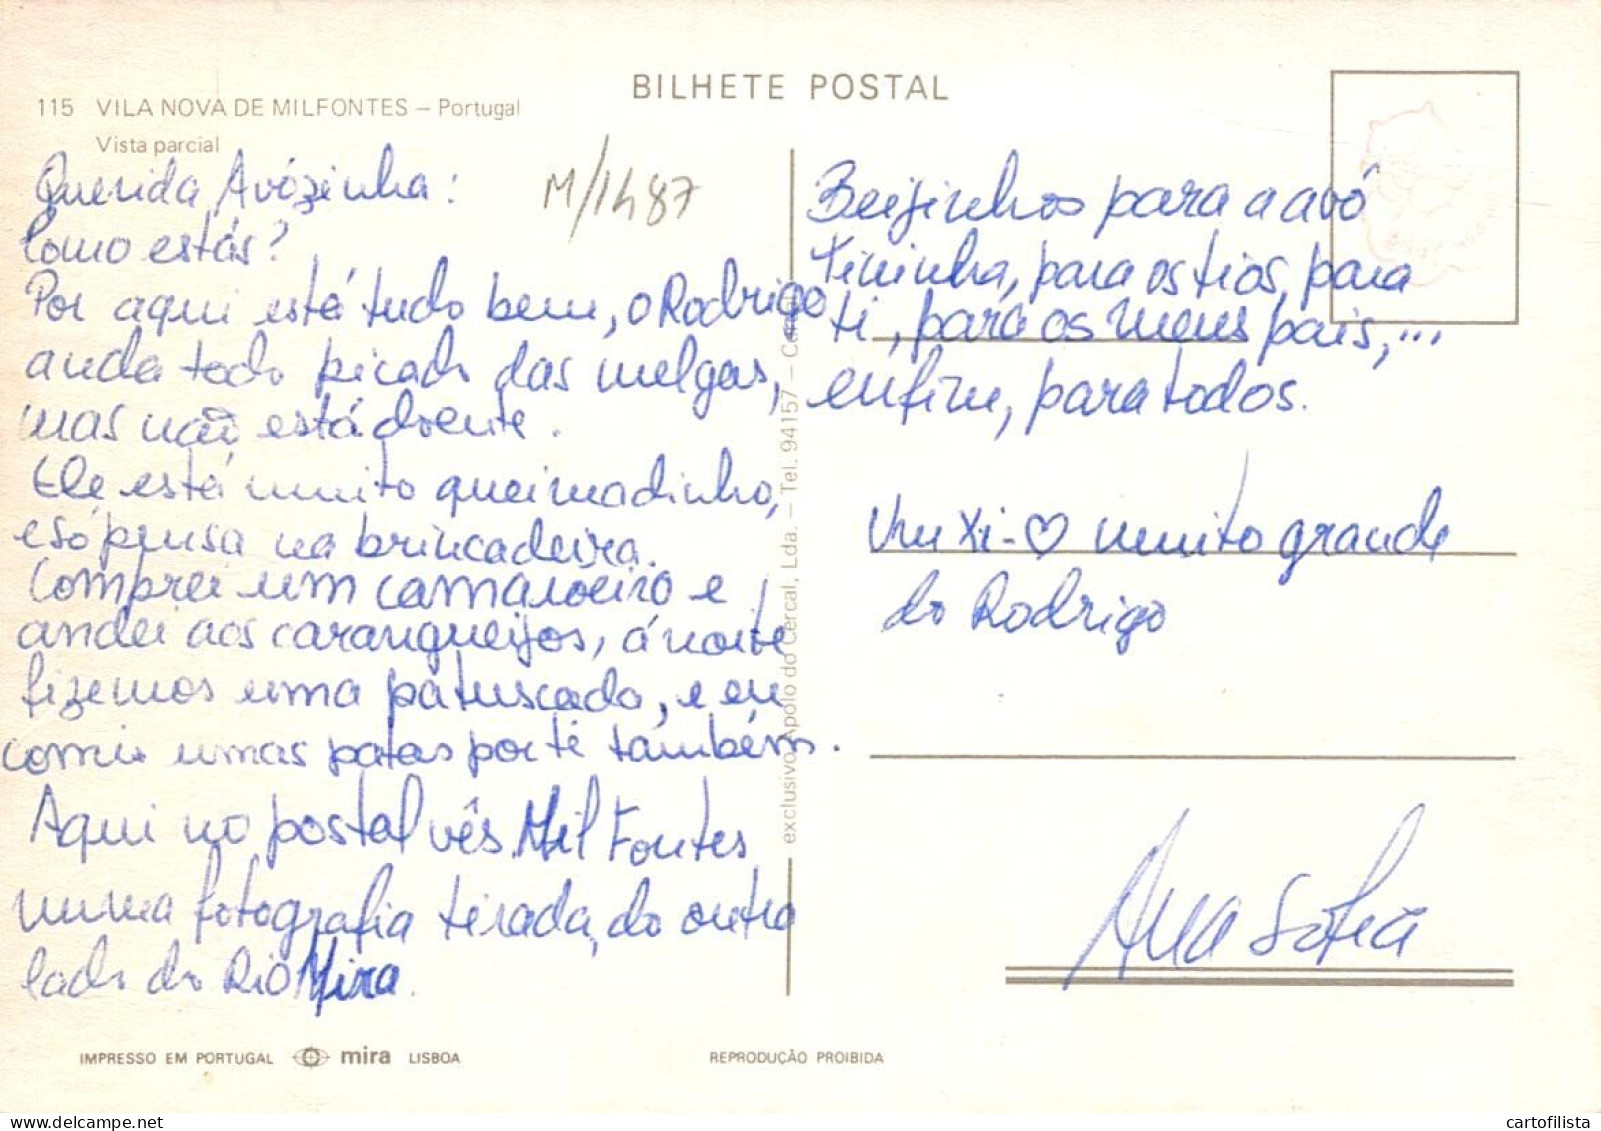 BILHETE POSTAL
115 VILA NOVA DE MILFONTES – Portugal
Vista parcial
M/1487
Querida Avózinha:
Como estás?
Por aqui está tudo bem, o Rodrigo
anda todo picado das melgas,
mas não está doente.
Ele está muito queimadinho,
e só pensa na brincadeira.
Comprei um camaroeiro e
andei aos caranguejos, á noite
fizemos uma patuscada, e eu
comi umas patas por ti também.
Aqui no postal vês Mil Fontes
numa fotografia tirada do outro
lado do Rio Mira.
exclusivo Apolo do Cercal, Lda. – Tel. 94157 – Cercal
Beijinhos para a avó
Tininha, para os tios, para
ti, para os meus pais,...
enfim, para todos.
Um Xi-♡ muito grande
do Rodrigo
Ana Sofia
IMPRESSO EM PORTUGAL mira LISBOA
REPRODUÇÃO PROIBIDA
cartofilista